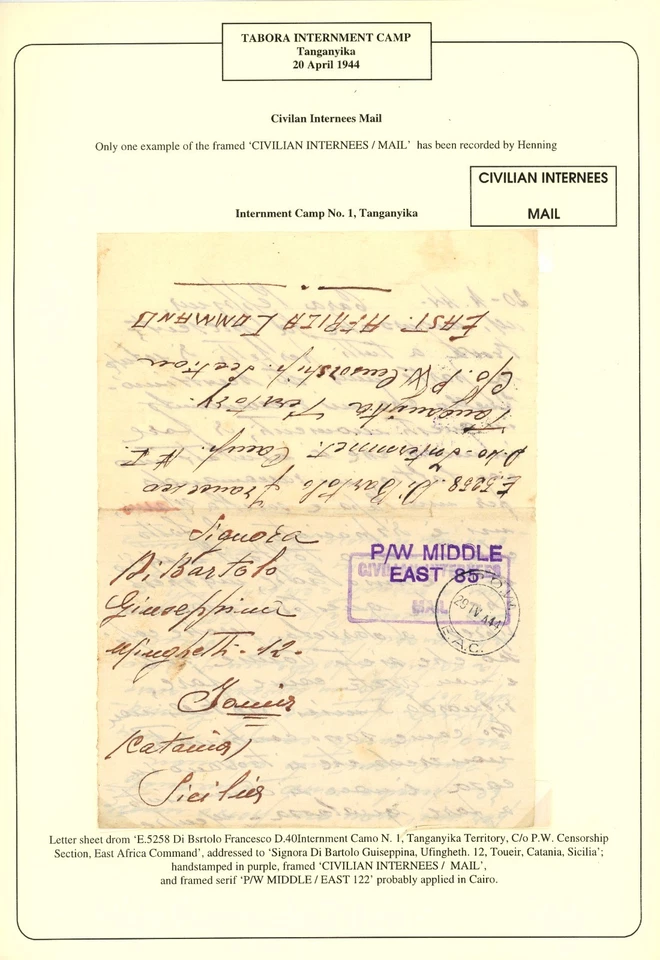 TABORA INTERNMENT CAMP
Tanganyika
20 April 1944
Civilan Internees Mail
Only one example of the framed ‘CIVILIAN INTERNEES / MAIL’ has been recorded by Henning
CIVILIAN INTERNEES
MAIL
Internment Camp No. 1, Tanganyika
E.5258. Di Bartolo Francesco
D.40-Internmet. Camp. N. I.
Tanganyika Territory.
C/o. P. W. Censorship. Section
EAST. AFRICA COMMAND
Signora
Di Bartolo
Giuseppina
Minghetti - 12 -
(Catania)
Sicilia
P/W MIDDLE
EAST 85
CIVILIAN INTERNEES
MAIL
29 IV 44
E.A.C.
Letter sheet drom ‘E.5258 Di Bsrtolo Francesco D.40Internment Camo N. 1, Tanganyika Territory, C/o P.W. Censorship
Section, East Africa Command’, addressed to ‘Signora Di Bartolo Guiseppina, Ufingheth. 12, Toueir, Catania, Sicilia’;
handstamped in purple, framed ‘CIVILIAN INTERNEES / MAIL’,
and framed serif ‘P/W MIDDLE / EAST 122’ probably applied in Cairo.